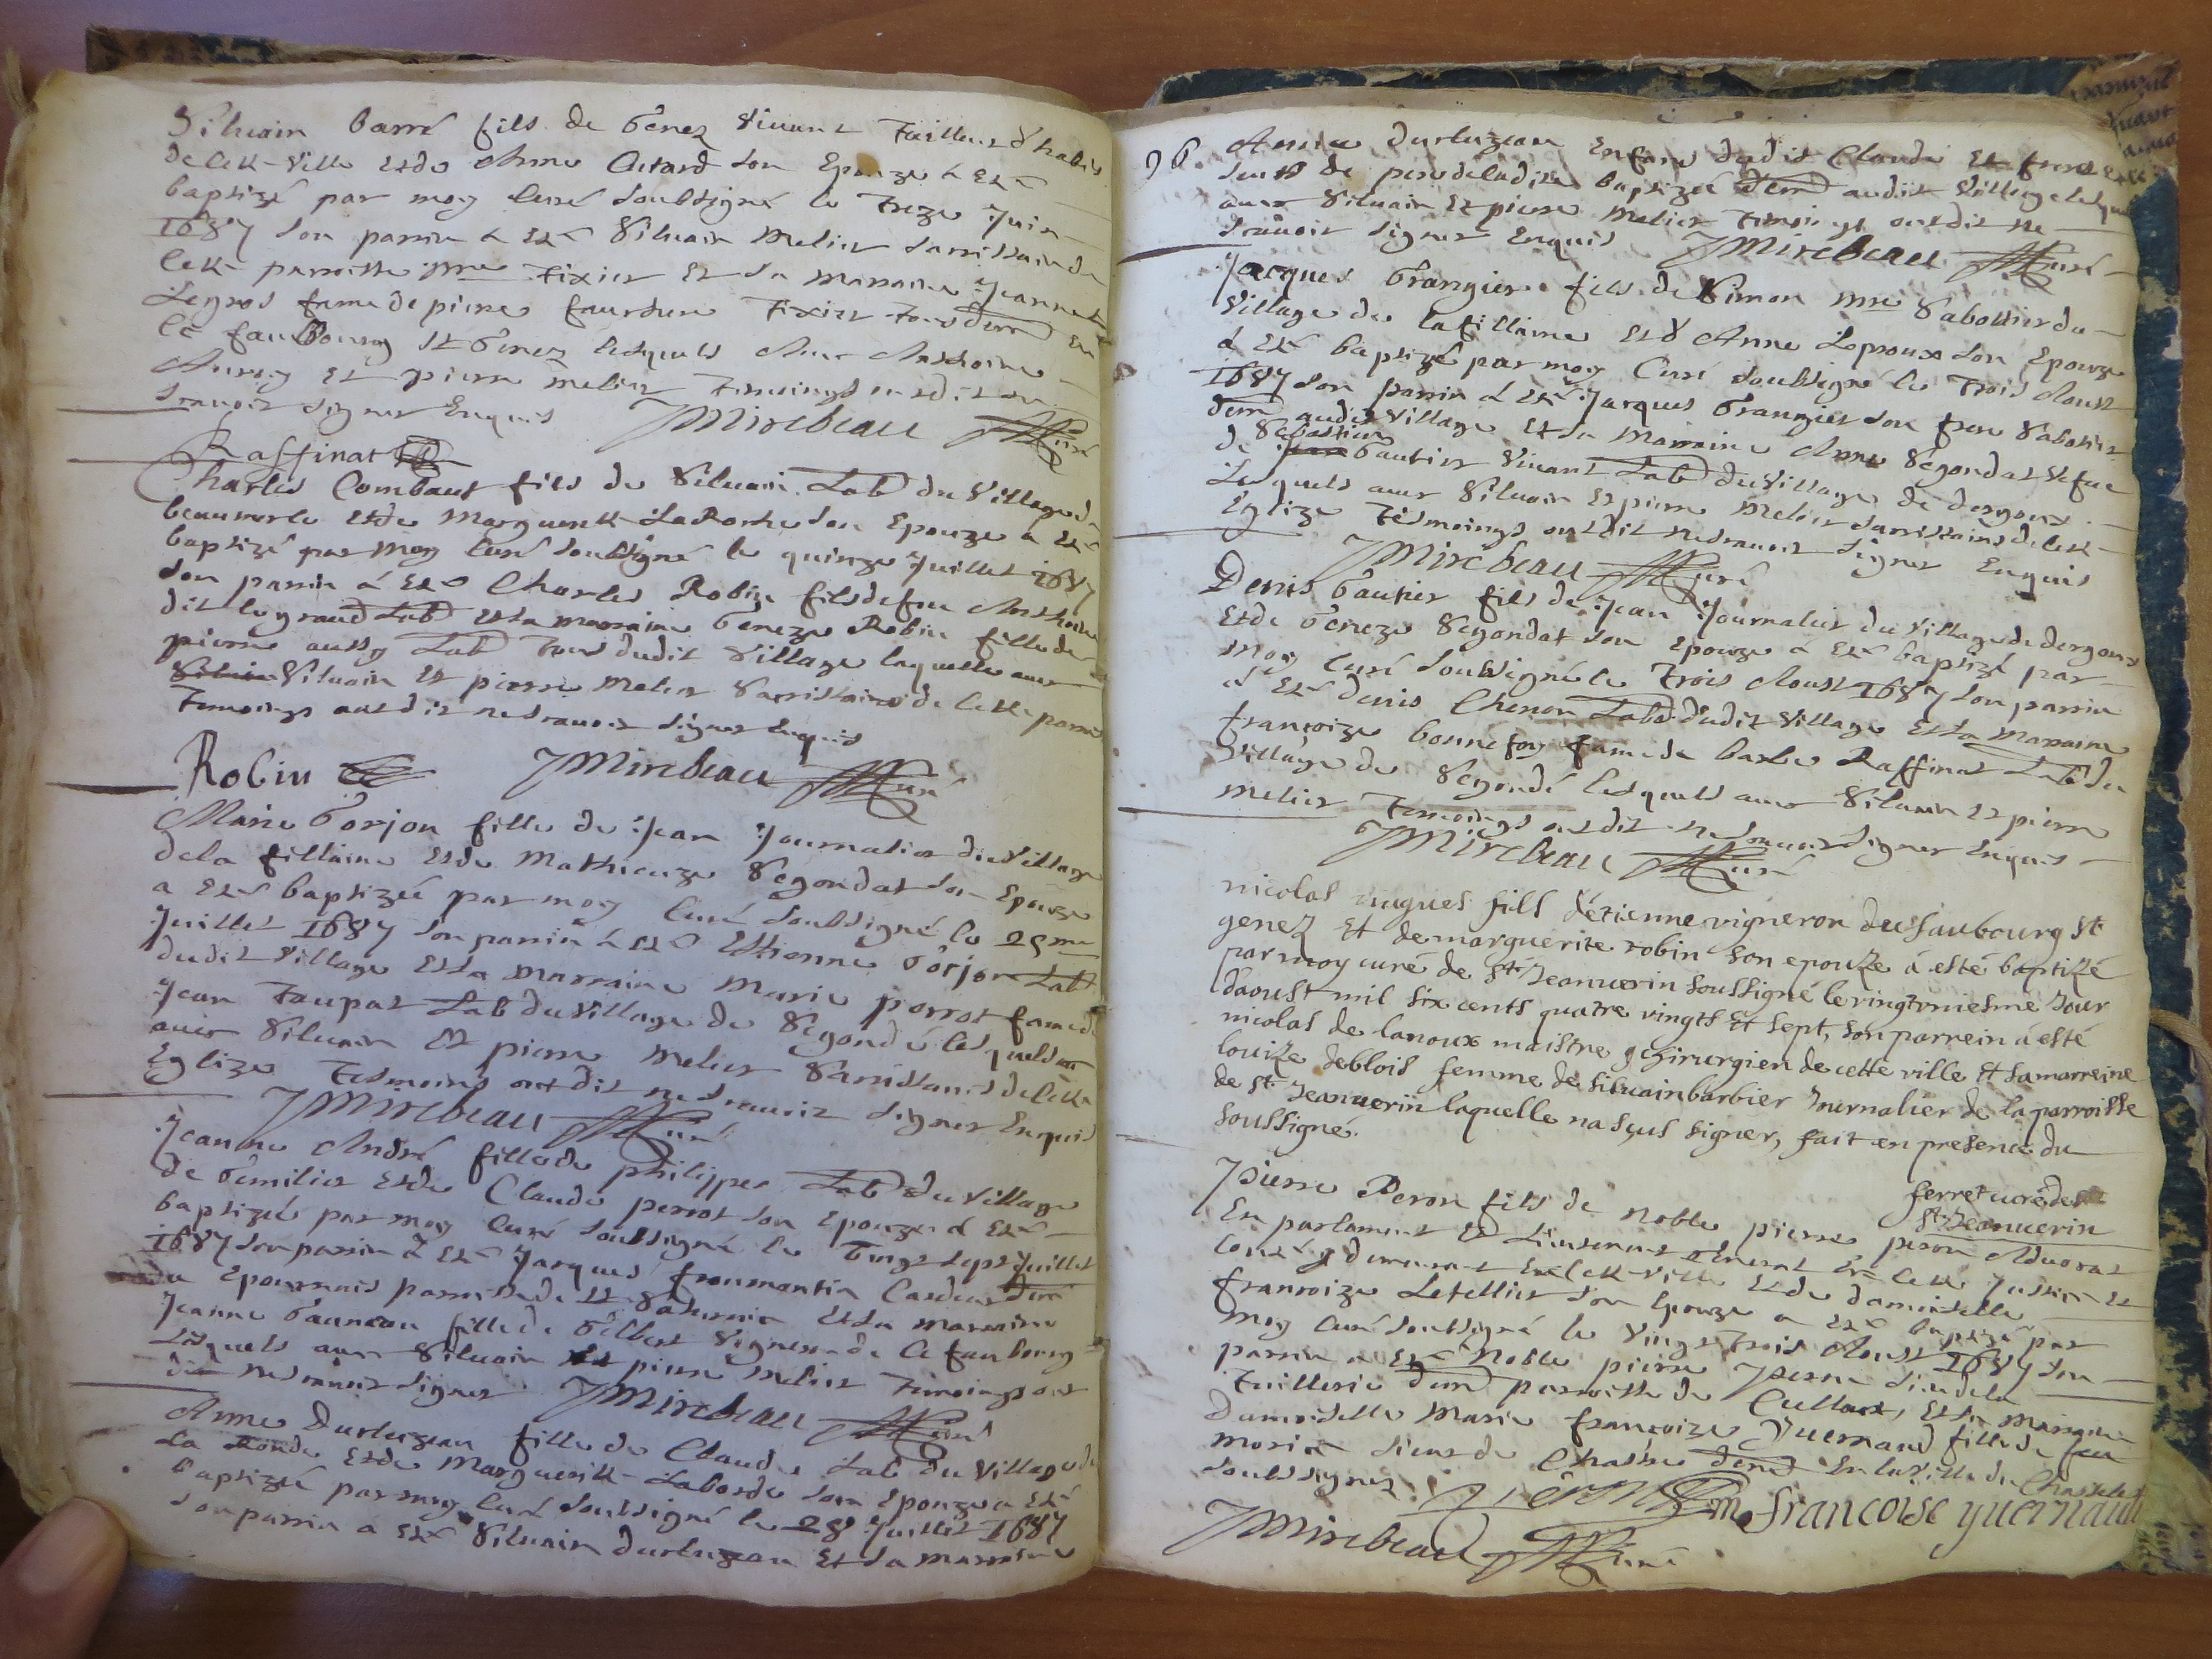 Siluain barré fils de Genez viuant Tailleur d'habits
de cett. ville et de Anne Citard son Epouze a esté
baptizé par moy Curé soubsigné le Treze Juin
1687 son parrin a esté Siluain Melier sacristain de
cett. parroisse Tixier et sa marraine Jeanne
Legros fame de pierre Tixier tous dem en
le faubourg st Genez lesquels auec Anthoine
Aurey et pierre melier Temoings ont dit ne
scauoir signer Enquis JMirebeau Curé
Raffinat
Charles Combaut fils de Siluain Lab du village de
beauuerle et de Marguerite LaRoche son Epouze a esté
baptizé par moy Curé soubsigné le quinze Juillet 1687
son parrin a esté Charles Robin fils de feu Anthoine
dit le grand Lab et sa marraine Geneze Robin fille de
pierre aussy Lab tous dudit village laquelle auec
Siluain et pierre melier sacristains de cette parroisse
Temoings ont dit ne scauoir signer Enquis
Robin JMirebeau Curé
Marie Gorjon fille de Jean Journalier du village
de la fillaine et de Mathieuze Segondat son Epouze
a esté baptizée par moy Curé soubsigné le 25me
Juillet 1687 son parrin a esté Estienne Gorjon Lab
dudit village et sa marraine Marie perrot fame de
Jean Taupat Lab du village de Segondé lesquels
auec Siluain et pierre Melier sacristains de cette
Eglize Tesmoins ont dit ne scauoir signer Enquis
JMirebeau Curé
Jeanne André fille de philippes Lab du village
de Gemilier et de Claude perrot son Epouze a esté
baptizée par moy Curé soubsigné le Vingt sept Juillet
1687 son parrin a esté Jacques froumentin Cardeur dem
parroisse de st Saturnin et sa marraine
Jeanne Gauneau fille de Gilbert vigneron de ce faubourg
lesquels auec Siluain et pierre melier Temoings ont
dit ne scauoir signer JMirebeau Curé
Anne Durluzeau fille de Claude Lab du village de
La Ronde et de Marguerite Laborde son Epouze a esté
baptizée par moy Curé soubsigné le 28 Juillet 1687
son parrin a esté Siluain durluzeau et sa marraine
Anne Durluzeau Enfans dudit Claude et frere et
seur de pere de ladite baptizée dem audit village lesquels
auec Siluain et pierre Melier Temoings ont dit ne
scauoir signer Enquis JMirebeau Curé
Jacques Grangier fils de Simon mre Sabottier du
village de la fillaine et d Anne Leproux son Epouze
a esté baptizé par moy Curé soubsigné le Trois Aoust
1687 son parrin a esté Jacques Grangier son frere Sabotier
dem audit village et sa Marraine Anne Segondat vefue
de Sebastien Gautier viuant Lab du village de dergoux
Lesquels auec Siluain et pierre Melier sacristains de cett.
Eglize Tesmoings ont dit ne scauoir signer Enquis
JMirebeau Curé
Denis Gautier fils de Jean Journalier du village de dergoux
et de Geneze Segondat son Epouze a esté baptizé par
moy Curé soubsigné le Trois Aoust 1687 son parrin
a esté denis Chenon Lab dudit village et sa Marraine
françoize bonnefoy fame de barbe Raffinat Lab du
village de Segondé lesquels auec Siluain et pierre
Melier Temoings ont dit ne scauoir signer Enquis
JMirebeau Curé
nicolas hugues fils d'etienne vigneron du faubourg st
genez Et de marguerite robin son epouze á esté baptizé
par moy curé de st Jeanuerin soussigné le vingtvniesme Jour
d'aoust mil six cents quatre vingts et sept, son parrein á esté
nicolas de lanoux maistre chirurgien de cette ville et sa marreine
louize deblois femme de siluain barbier Journalier de la parroisse
de st Jeanuerin laquelle na sçus signer, fait en presence du
soussigné.
ferret curé de
st Jeanuerin
Pierre Peron fils de noble pierre peron Aduocat
En parlement et Lieutenant General En cette Justice et
Comté y demeurant En cett. ville et de damoiselle
françoize Letellier son Epouze a esté baptizé par
moy Curé soubsigné le Vingt trois Aoust 1687 son
parrin a esté noble pierre peron sieur de la
Tuillerie dem parroisse de Cullant, et sa Marraine
damoiselle Marie françoize Yuernaud fille de feu
sieur de Chastre dem En la ville de Chastelet
soubsignez m francoise yuernaud
JMirebeau Curé